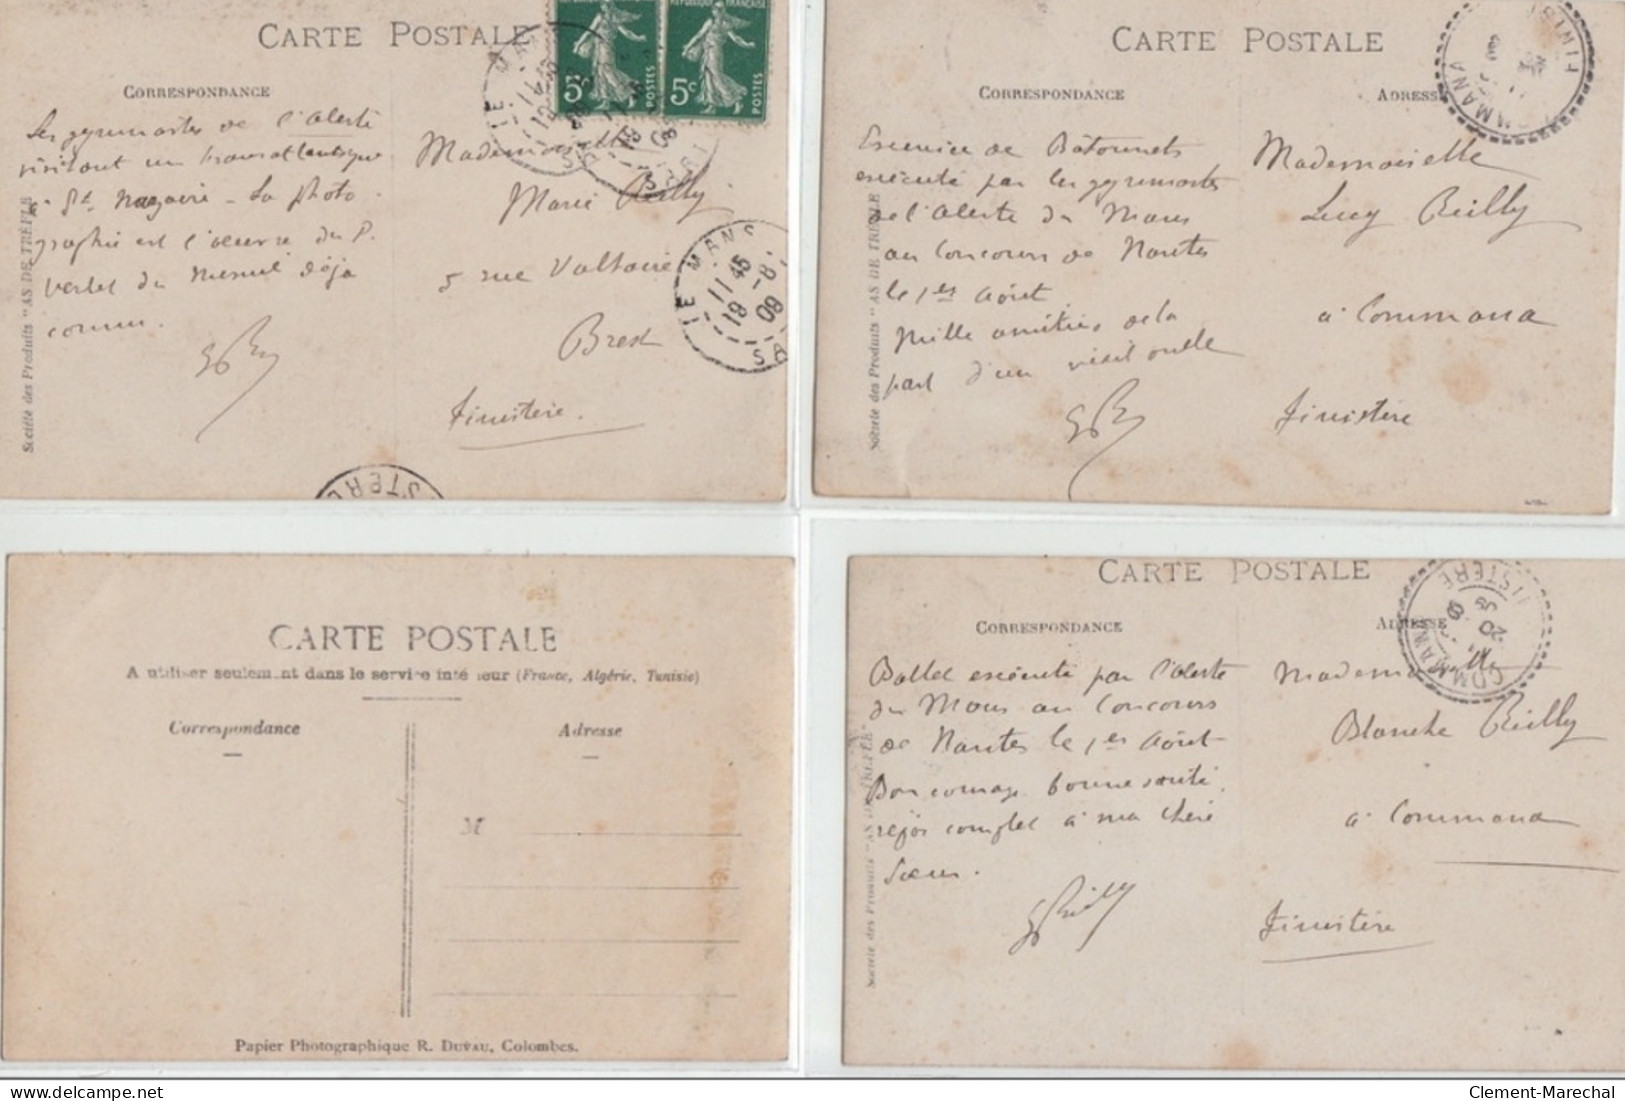 CARTE POSTALE
CORRESPONDANCE
RÉPUBLIQUE FRANÇAISE
5c POSTES
5c POSTES
LE MANS
Les gymnastes de l'Alerte
visitant un transatlantique
à St Nazaire - La photo
graphie est l'œuvre du P.
Verbal du Mesnil déjà
connu.
Mademoiselle
Marie Reilly
5 rue Voltaire
Brest
Finistère.
LE MANS
11 45
19 -8
09
Société des Produits "AS DE TRÈFLE"
CARTE POSTALE
CORRESPONDANCE
ADRESSE
COMMANA
FINIST
Exercice de Bâtonnets
exécuté par les gymnastes
de l'Alerte du Mans
au Concours de Nantes
le 1er Août
Mille amitiés de la
part d'un
Mademoiselle
Lucy Reilly
à Commana
Finistère
Société des Produits "AS DE TREFLE"
CARTE POSTALE
A utiliser seulement dans le service intérieur (France, Algérie, Tunisie)
Correspondance
Adresse
M
Papier Photographique R. DUVAU, Colombes.
CARTE POSTALE
CORRESPONDANCE
ADRESSE
COMMANA
FINISTERE
20
09
Ballet exécuté par l'Alerte
du Mans au Concours
de Nantes le 1er Août
Bon courage bonne santé,
repos complet à ma chère
Sœur.
Reilly
Mademoiselle
Blanche Reilly
à Commana
Finistère
Société des Produits "AS DE TREFLE"
Clement-Marechal